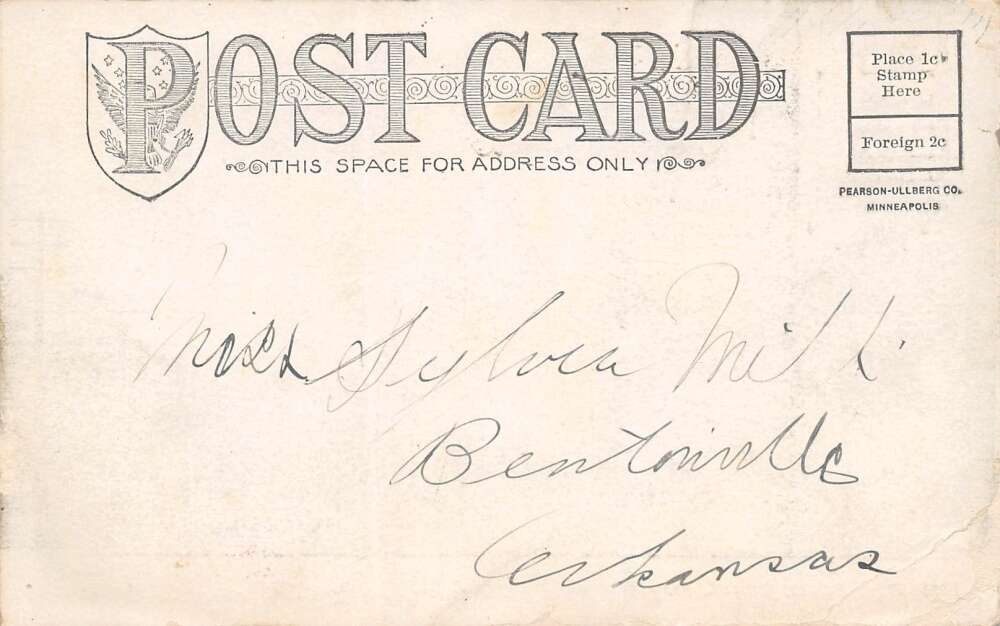 POST CARD
THIS SPACE FOR ADDRESS ONLY
Place 1c
Stamp
Here
Foreign 2c
PEARSON-ULLBERG CO.
MINNEAPOLIS
Miss Sylvia
Bentonville
Arkansas